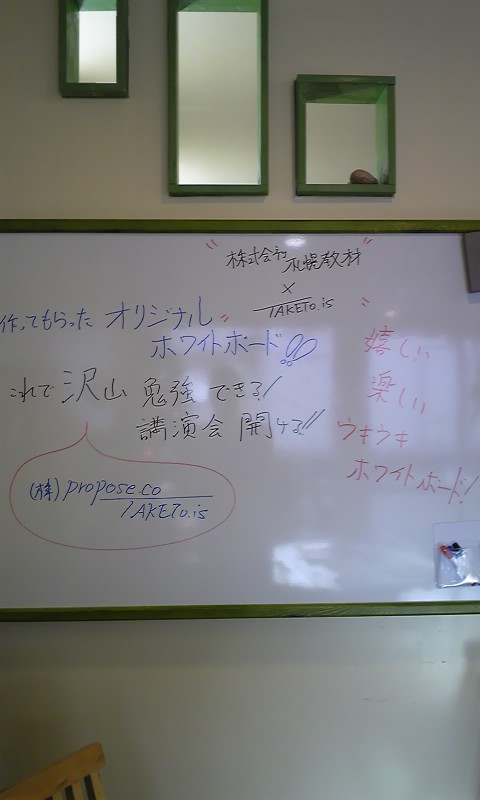 "株式会社 札幌教材"
×
"TAKETO.is"
作ってもらった オリジナル
ホワイトボード!!
これで 沢山 勉強 できる!
講演会 開ける!!
(株) propose.co
TAKETo.is
嬉しい
楽しい
ウキウキ
ホワイトボード!